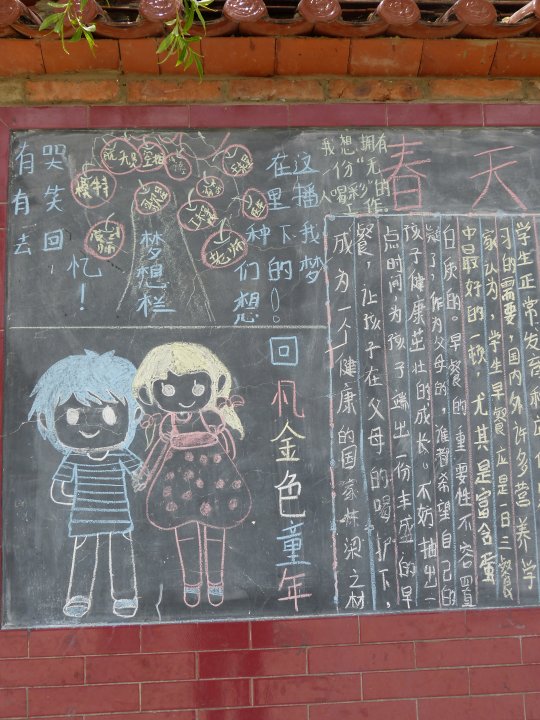 春天
学生正常发育和
习的需要,国内外许多营养学
家认为,学生早餐应是日三餐
中最好的一顿 尤其是富含蛋
白质的。早餐的重要性不容置
疑了,作为父母的,谁都希望自己的
孩子健康茁壮的成长。不妨抽出一
点时间,为孩子端出一份丰盛的早
餐,让孩子在父母的喝护下,
成为一个健康的国家栋梁之材
我想拥有
份“无”的
人喝彩 作
这播我梦
在里下的!
种们想
梦想栏
哭笑回忆!
有有去
回凡金色童年